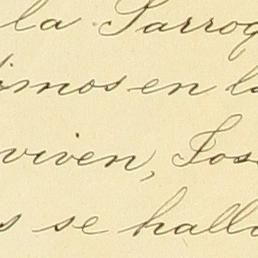 la Parroq
imos en la
viven, Jos
s se halla